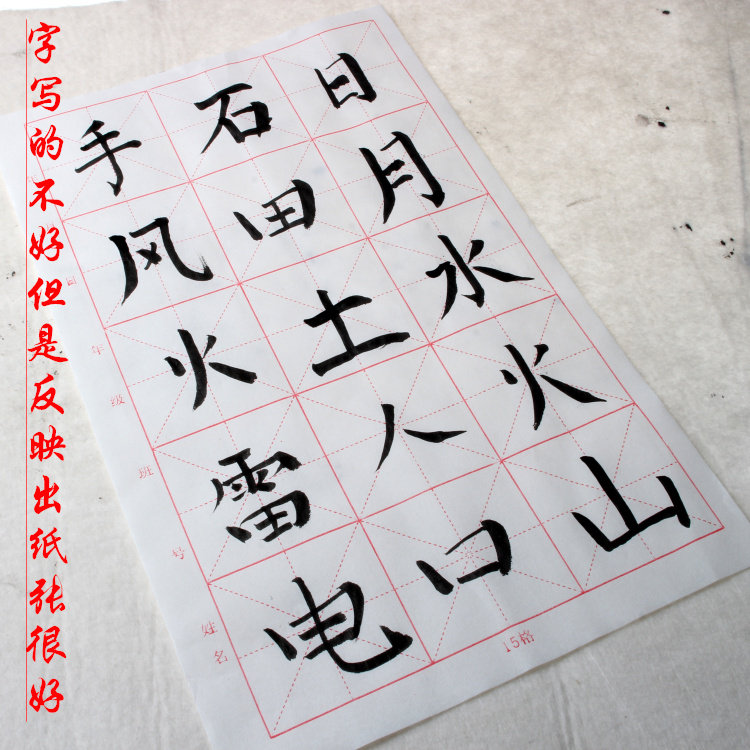 字写的不好但是反映出纸张很好
日月水火山
石田土人口
手风火雷电
年级 班 号 姓名
15格